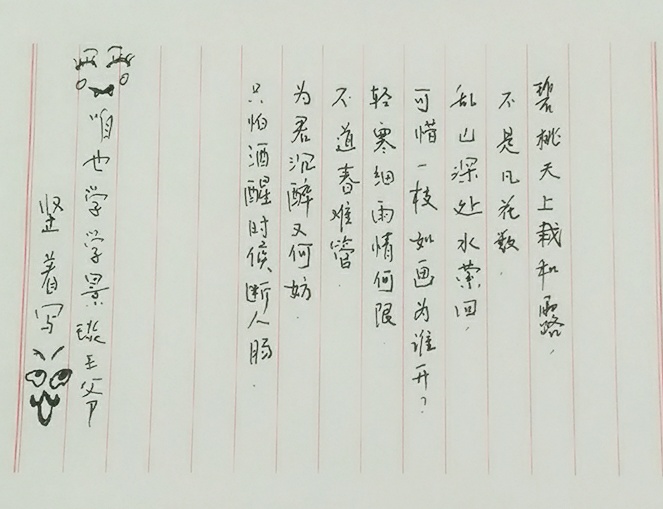 碧桃天上栽和露，
不是凡花数．
乱山深处水萦回，
可惜一枝如画为谁开？
轻寒细雨情何限．
不道春难管．
为君沉醉又何妨．
只怕酒醒时候断人肠．
咱也学学景琰王爷
竖着写